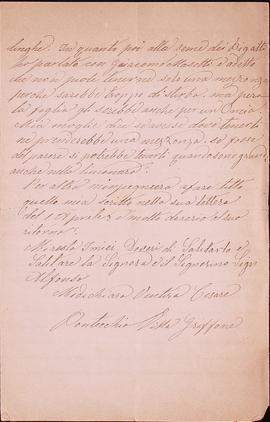 linghe. In quanto poi alla seme dei Bigatti
ho parlato con Giacomo Masetti e a detto
che non puole tenerne solo una mezzonza
perche sarebbe troppo disturbo, ma per
la foglia gli sarebbe anche per un oncia
Mia moglie dice se messe deve tenerli
ne prenderebbe una mezzonza, se fosse
del parere si potrebbe tenerli quando sono grandi
anche nella
Per altro m'impegnerò a fare tutto
quello mi a scritto nella sua lettera
del 1 Aprile, e molto desero il suo
ritorno.
Miresta I miei Deseri di Salutarlo e
Salutare la Signora e il Signorino Sigr
Alfonso
Midichiaro Ventura Cesare
Pontecchio Villa Griffone